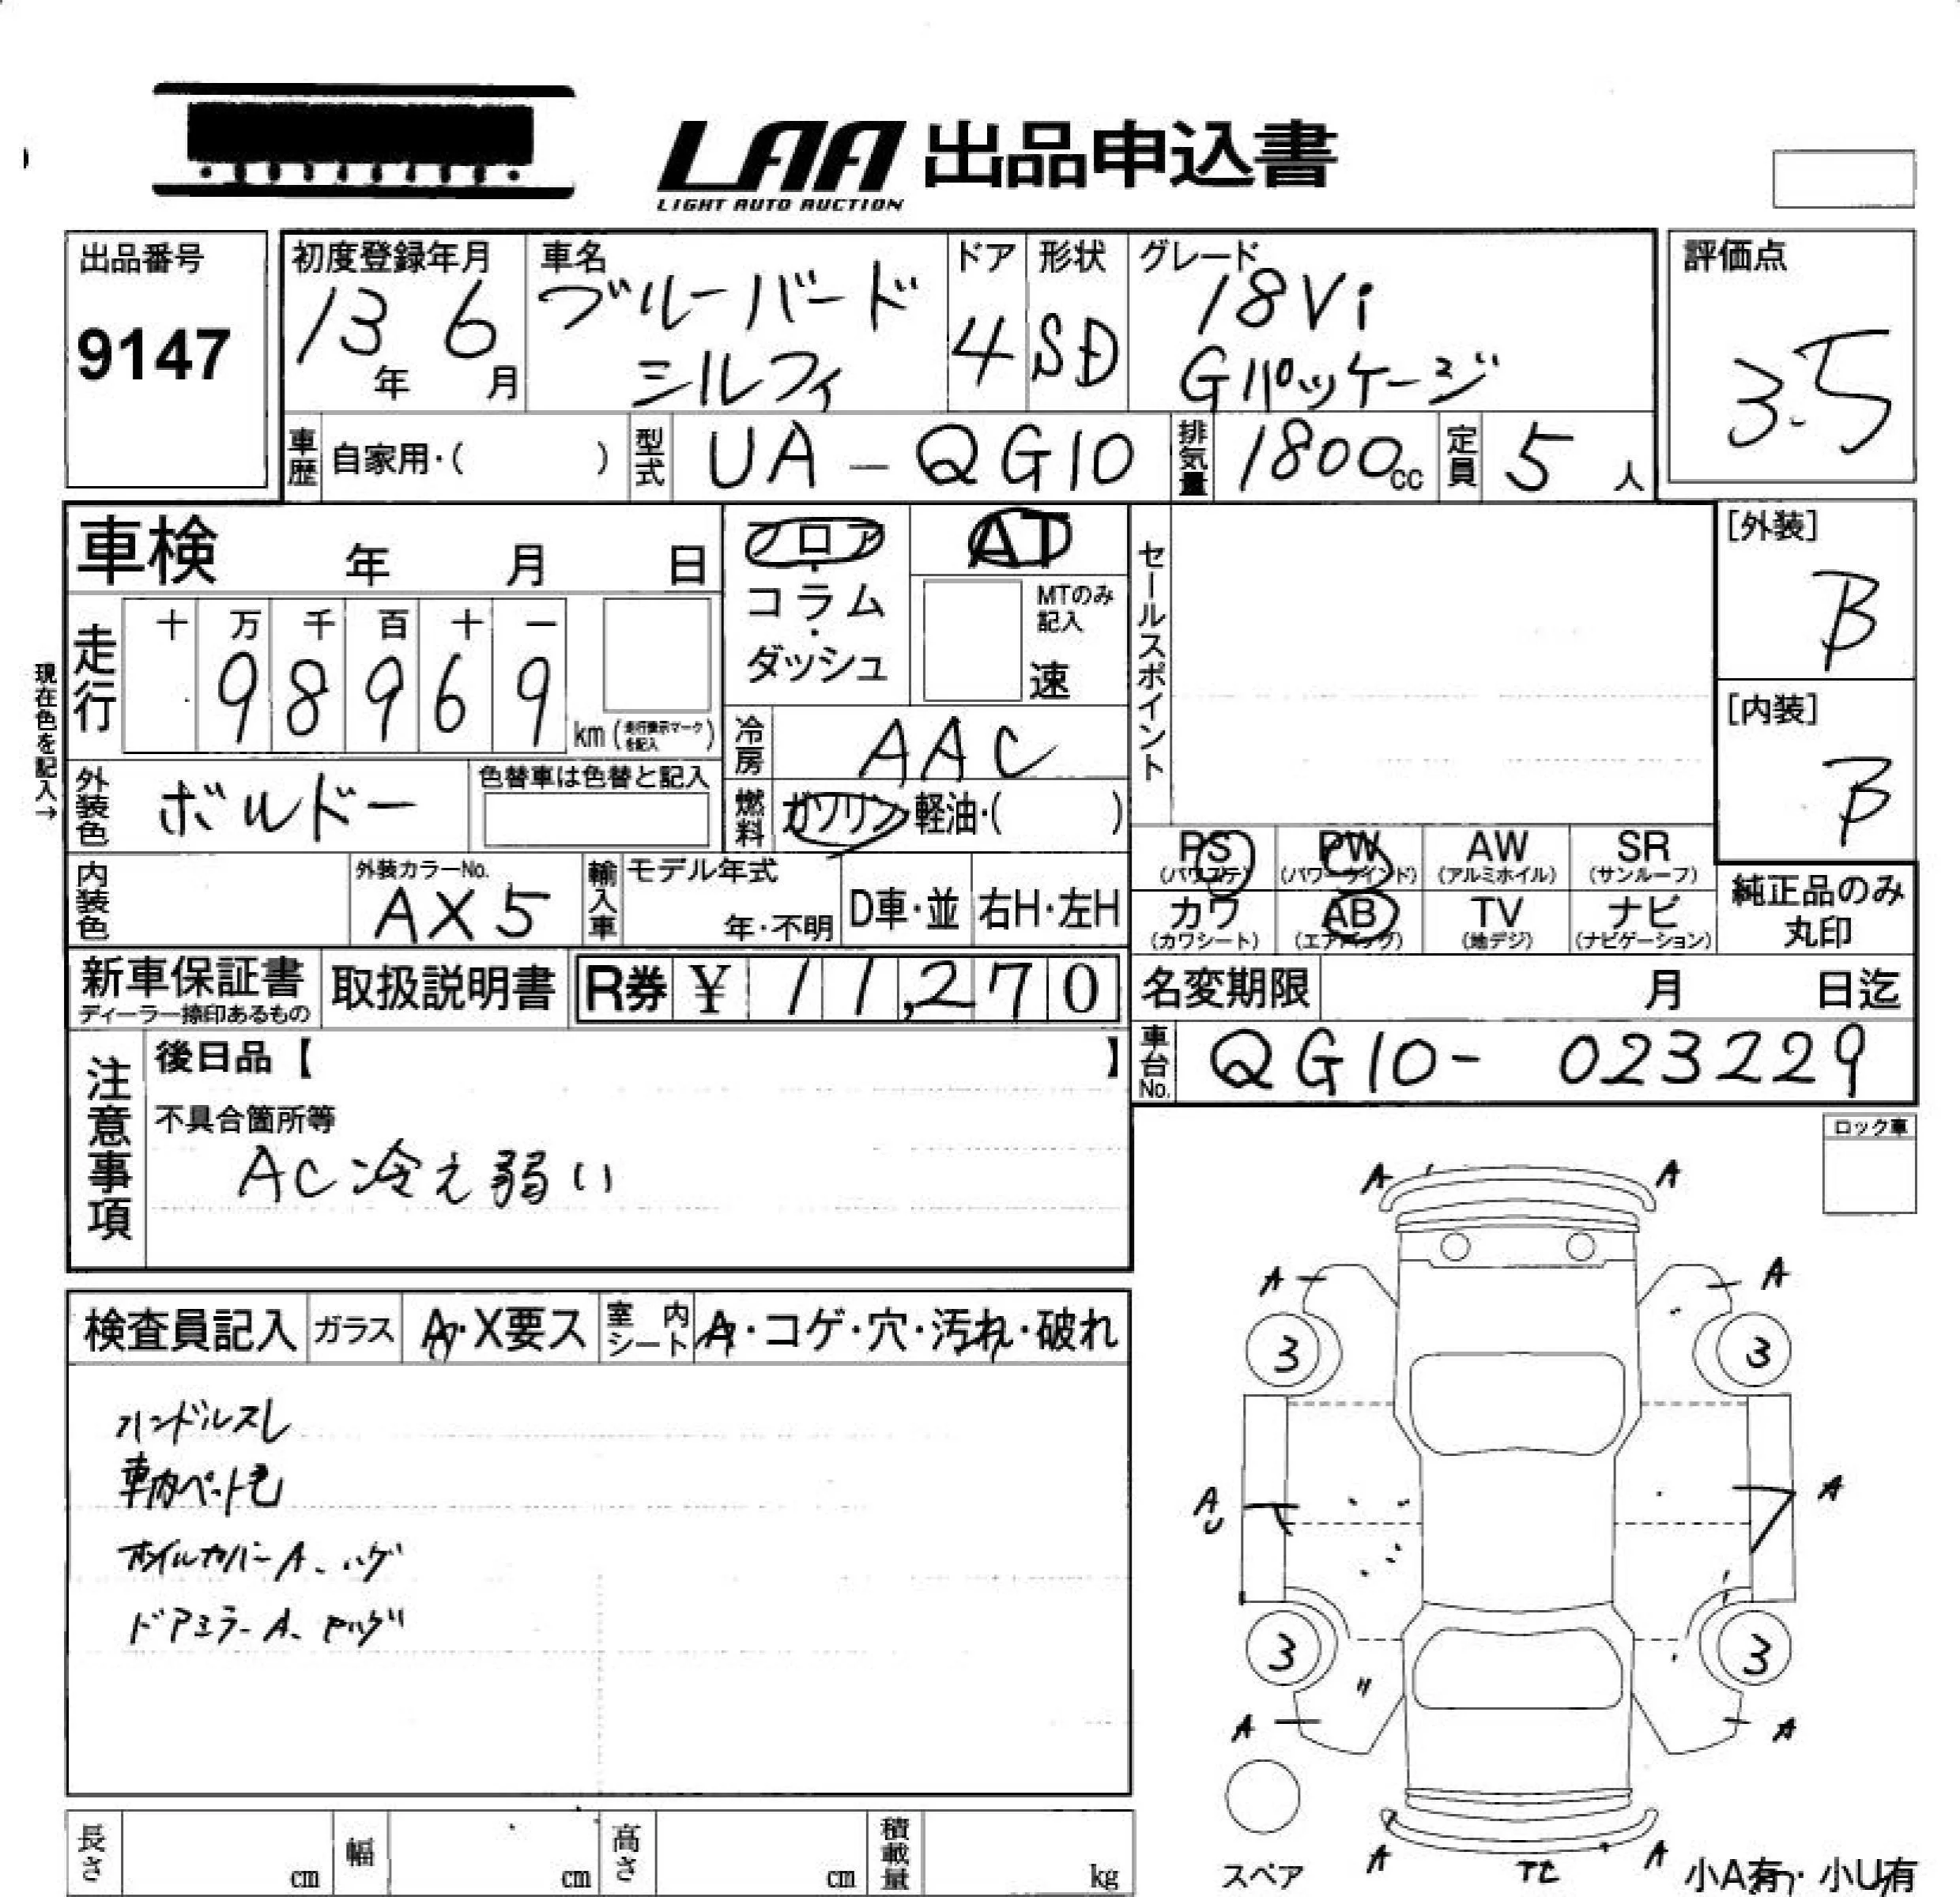 LAA 出品申込書
LIGHT AUTO AUCTION
出品番号
9147
初度登録年月
13年 6月
車名
ブルーバード
シルフィ
ドア
4
形状
SD
グレード
18Vi
Gパッケージ
評価点
3.5
車歴 自家用・( )
型式 UA-QG10
排気量 1800cc
定員 5人
車検 年 月 日
フロア・コラム・ダッシュ
AT
MTのみ記入
速
セールスポイント
[外装]
B
[内装]
B
現在色を記入→
走行
十 万 千 百 十 一
9 8 9 6 9
km (走行表示マークを記入)
冷房 AAC
燃料 ガソリン・軽油・( )
外装色 ボルドー
色替車は色替と記入
内装色
外装カラーNo.
AX5
輸入車 モデル年式
年・不明
D車・並
右H・左H
PS
(パワステ)
PW
(パワーウインド)
AW
(アルミホイル)
SR
(サンルーフ)
カワ
(カワシート)
AB
(エアバッグ)
TV
(地デジ)
ナビ
(ナビゲーション)
純正品のみ
丸印
新車保証書
ディーラー捺印あるもの
取扱説明書
R券 ¥ 11,270
名変期限 月 日迄
車台No. QG10- 023229
注意事項
後日品【 】
不具合箇所等
AC冷え弱い
ロック車
検査員記入 ガラス A・X要ス 室内シート A・コゲ・穴・汚れ・破れ
ハンドルスレ
車内ペット毛
ホイルカバーA、ハゲ
ドアミラーA、
A A
A A
3 3
A
U
A
3 3
A A
スペア
A A
小A有・小U有
長さ cm
幅 cm
高さ cm
積載量 kg